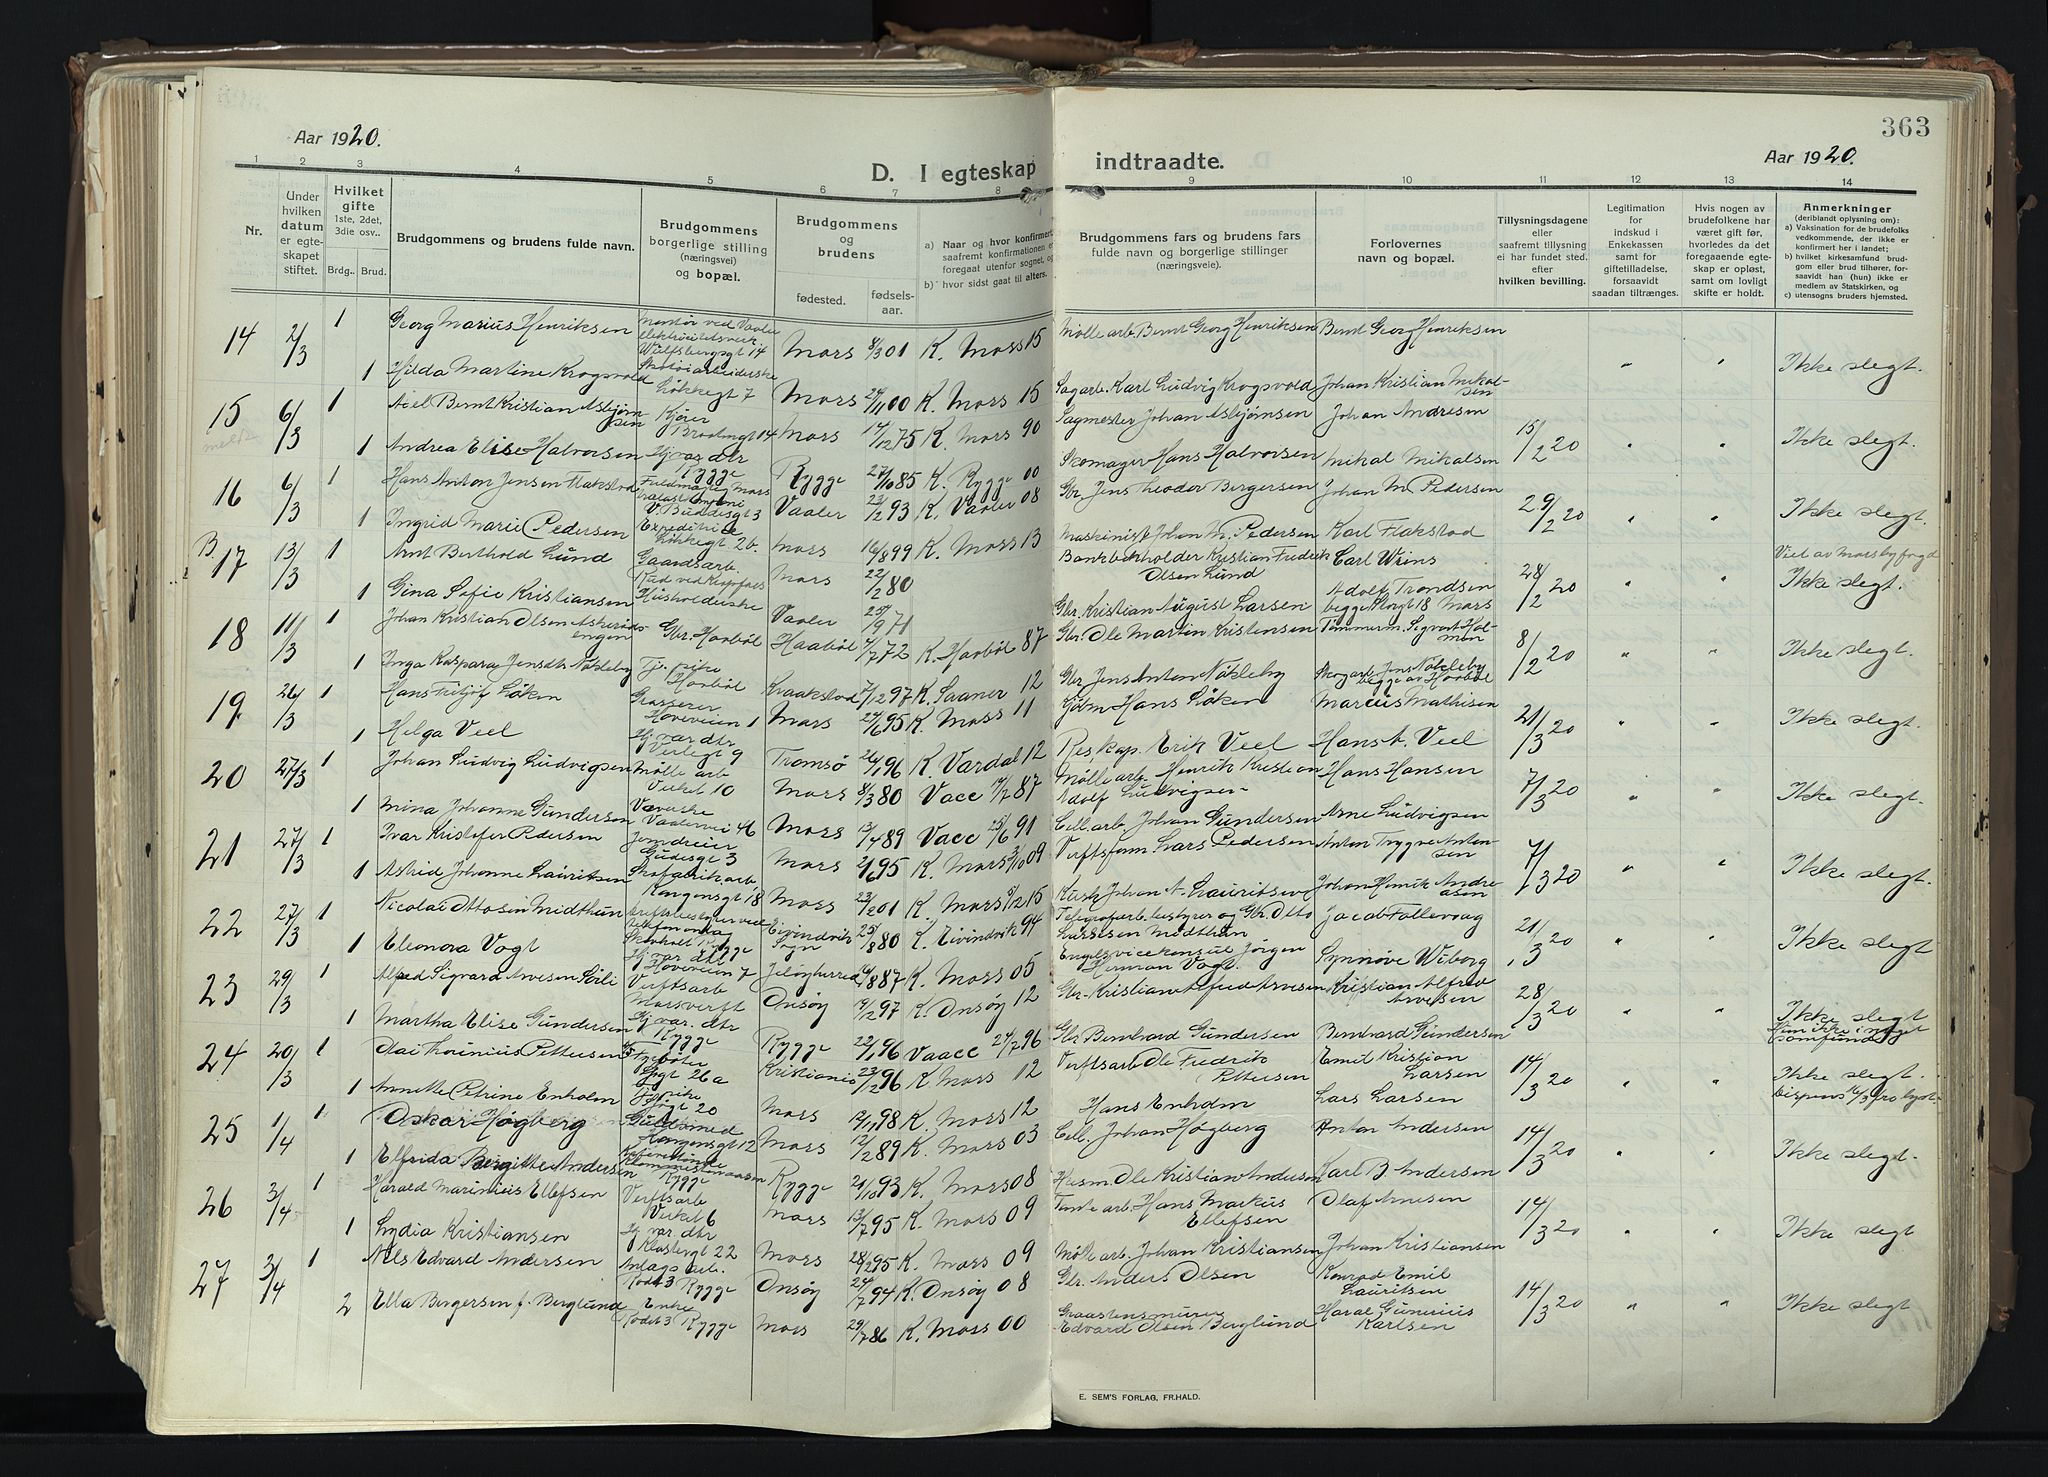 Aar 1920.
D. I egteskap
indtraadte.
Aar 1920.
363
1 2 3 4 5 6 7 8 9 10 11 12 13 14
Nr.
Under hvilken datum er egte-skapet stiftet.
Hvilket gifte
1ste, 2det, 3die osv..
Brdg.. Brud.
Brudgommens og brudens fulde navn.
Brudgommens borgerlige stilling (næringsvei) og bopæl.
Brudgommens og brudens
fødested. fødsels-aar.
a) Naar og hvor konfirmert, saafremt konfirmationen er foregaat utenfor sognet, og
b) hvor sidst gaat til alters.
Brudgommens fars og brudens fars fulde navn og borgerlige stillinger (næringsveie).
Forlovernes navn og bopæl.
Tillysningsdagene eller saafremt tillysning ei har fundet sted. efter hvilken bevilling.
Legitimation for indskud i Enkekassen samt for giftetilladelse, forsaavidt saadan tiltrænges.
Hvis nogen av brudefolkene har været gift før, hvorledes da det foregaaende egte-skap er opløst, samt om lovligt skifte er holdt.
Anmerkninger
(deriblandt oplysning om):
a) Vaksination for de brudefolks vedkommende, der ikke er konfirmert her i landet;
b) hvilket kirkesamfund brud-gom eller brud tilhører, for-saavidt han (hun) ikke er medlem av Statskirken, og
c) utensogns bruders hjemsted.
14 2/3 1 Georg Marius Henriksen Montør ved Vaaler elektricitetsverk Wulfsbergsgt 14 Moss 8/3 01 K. Moss 15 Mølle arb. Bernt Georg Henriksen Bernt Georg Henriksen
1 Hilda Martine Krogsvold Skotøiarbeiderske Løkkegt 7 Moss 00 K. Moss 15 Sagarb. Karl Ludvig Krogsvold Johan Kristian Mikalsen " " Ikke slegt.
15 6/3 1 Axel Bernt Kristian Asbjørnsen Kjører 14 Moss 14/12 75 K. Moss 90 Sagmester Johan Asbjørnsen Johan Andresen
1 Andrea Elise Halvorsen Hj. vær. dtr Rygge Rygge 27/10 85 K. Rygge 00 Skomager Hans Halvorsen Mikal Mikalsen 15/2 20 " " Ikke slegt.
16 6/3 1 Hans Anton Jensen Flakstad V. Bundesgt 3 Vaaler 23/2 93 K. Vaaler 08 Gbr. Jens Teodor Bergersen Johan M. Pedersen
1 Ingrid Marie Pedersen Expeditrice Løkkegt 26. Moss 16/8 99 K. Moss 13 Maskinist Johan M. Pedersen Karl Flakstad 29/2 20 " " Ikke slegt.
B. 17 13/3 1 Arnt Berthold Lund Gaardsarb. Moss 22/2 80 Bankbokholder Kristian Fredrik Olsen Lund Carl Wiins Viet av Moss byfogd
1 Gina Sofie Kristiansen Husholderske Vaaler 25/9 71 Gbr. Kristian August Larsen Adolf Trondsen begge Storgt 18 Moss 28/2 20 " " Ikke slegt.
18 11/3 1 Johan Kristian Olsen Askerødsengen Gbr. Haabøl Haabøl 4/7 72 K. Haabøl 87 Gbr. Ole Martin Kristensen Tømmerm. Sigvart Holmen
1 Inga Kaspara Jensdtr Nøkleby Tj. pike Haabøl Kraakstad 7/12 97 K. Saaner 12 Gbr Jens Anton Nøkleby Skogarb. Jens Nøkleby begge av Haabøl 8/2 20 " " Ikke slegt.
19 26/3 1 Hans Fritjof Løken Grosserer Høveveien 1 Moss 24/6 95 K. Moss 11 Gjörtm Hans Løken Marius Mathisen
1 Helga Veel Hj. vær. dtr Verlegt 9 Tromsø 26/1 96 K. Vardal 12 Res kap. Erik Veel Hans A. Veel 21/3 20 " " Ikke slegt.
20 27/3 1 Johan Ludvig Ludvigsen Mølle arb Verket 10 Moss 8/3 80 Vacc 17/7 87 Møllearb. Henrik Kristian Adolf Ludvigsen Hans Hansen
1 Mina Johanne Gundersen Væverske Vaalervei 46 Moss 13/4 89 Vacc 25/6 91 Cell. arb Johan Gundersen Arne Ludvigsen 7/3 20 " " Ikke slegt.
21 27/3 1 Ivar Kristofer Pedersen Jerndreier Gudesgt 3 Moss 95 K. Moss 3/10 09 Verftsform. Lars Pedersen Anton Trygve Antonsen
1 Astrid Johanne Lauritsen Skofabrik. arb. Kongensgt 18 Moss 23/2 01 K. Moss 15 Kusk Johan A. Lauritsen Johan Henrik Andreasen 7/3 20 " " Ikke slegt.
22 27/3 1 Nicolai Ottosen Midthun Rygge Eivindvik Sogn 25/8 80 K. Eivindvik 94 Telegrafarb. bestyrer og Gbr. Otto Lassesen Midthun Jacob Følleraag
1 Eleonora Vogt Hj. vær. dtr. Høveveien 7 Jeløyherred 14/8 87 K. Moss 05 Engelsk vicekonsul Jørgen Herman Vogt. Synnøve Wiborg 21/3 20 " " Ikke slegt
23 29/3 1 Alfred Sigvard Arvesen Sørli Verftsarb Mossverft Onsøy 19/2 97 K. Onsøy 12 Gbr. Kristian Alfred Arvesen Kristian Alfred Arvesen
1 Martha Elise Gundersen Hj. vær. dtr Rygge Rygge 22/1 96 Vaacc 24/7 96 Gbr Bernhard Gundersen Bernhard Gundersen 28/3 20 " " Ikke slegt Hun ikke i noget samfund
24 20/3 1 Olai Thorinius Pettersen Fyrbøter 26a Kristiania 23/2 96 K. Moss 12 Verftsarb Ole Fredrik Pettersen Emil Kristian Larsen
1 Annette Petrine Enholm Tj. pike 20 Moss 12/11 98 K. Moss 12 Hans Enholm Lars Larsen 14/3 20 " " Ikke slegt.
25 1/4 1 Oskar Høgberg Guldsmed Kongensgt 12 Moss 12/2 89 K. Moss 03 Cell. Johan Høgberg Anton Andersen
1 Elfrida Bergitte Andersen Rygge Rygge 24/10 93 K. Moss 08 Husm. Ole Kristian Andersen Karl B. Andersen 14/3 20 " " Ikke slegt.
26 3/4 1 Harald Marinius Ellefsen Verftsarb Verket 6 Moss 13/7 95 K. Moss 09 Tomtearb. Hans Markus Ellefsen Olaf Arnesen
1 Lydia Kristiansen Hj. vær. dtr Klostergt 22 Moss 28/2 95 K. Moss 09 Mølle arb. Johan Kristiansen Johan Kristiansen 14/3 20 " " Ikke slegt
27 3/4 1 Nils Edvard Andersen Anlagsarb. Rødt 3 Rygge Onsøy 24/7 94 K. Onsøy 08 Gbr. Anders Olsen Konrad Emil Lauritsen
2 Ella Bergersen f. Berglund Enke Rødt 3 Rygge Moss 29/7 86 K. Moss 00 Graastensmurer Edvard Olsen Berglund Harald Gunerius Karlsen 14/3 20 " " Ikke slegt
E. SEM'S FORLAG, FR.HALD.